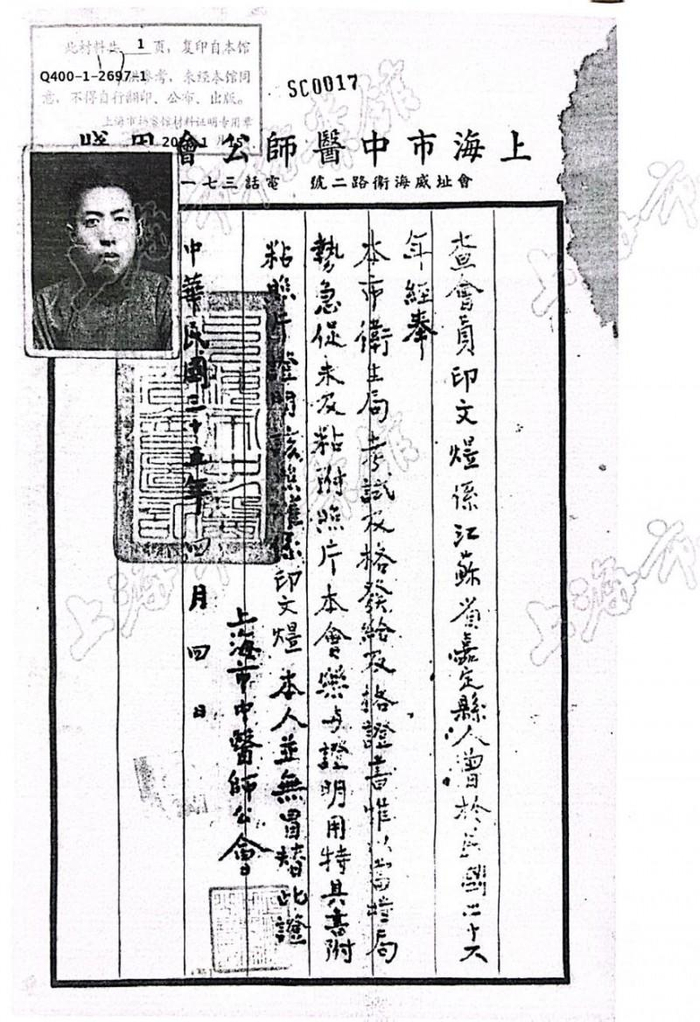 此材料共 1 页，复印自本馆
Q400-1-2697-1
参考，未经本馆同
意，不得自行翻印、公布、出版。
上海市档案馆材料证明专用章
SC0017
上海市中醫師公會用牋
會址威海衛路二號 電話三七一
查會員印文煜係江蘇省嘉定縣人曾於民國二十六
年經奉
本市衛生局考試及格發給及格證書惟以當時局
勢急促未及粘附照片本會樂與證明用特具書附
粘照片證明該照確係印文煜本人並無冒替此證
上海市中醫師公會
中華民國三十五年四月四日